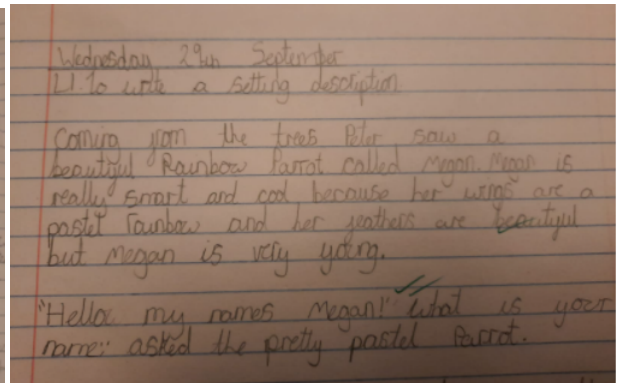 Wednesday 29th September
LI: To write a setting description
Coming from the trees Peter saw a
beautiful Rainbow Parrot called Megan. Megan is
really smart and cool because her wings are a
pastel rainbow and her feathers are beautiful
but Megan is very young.
"Hello my names Megan!" What is your
name" asked the pretty pastel Parrot.